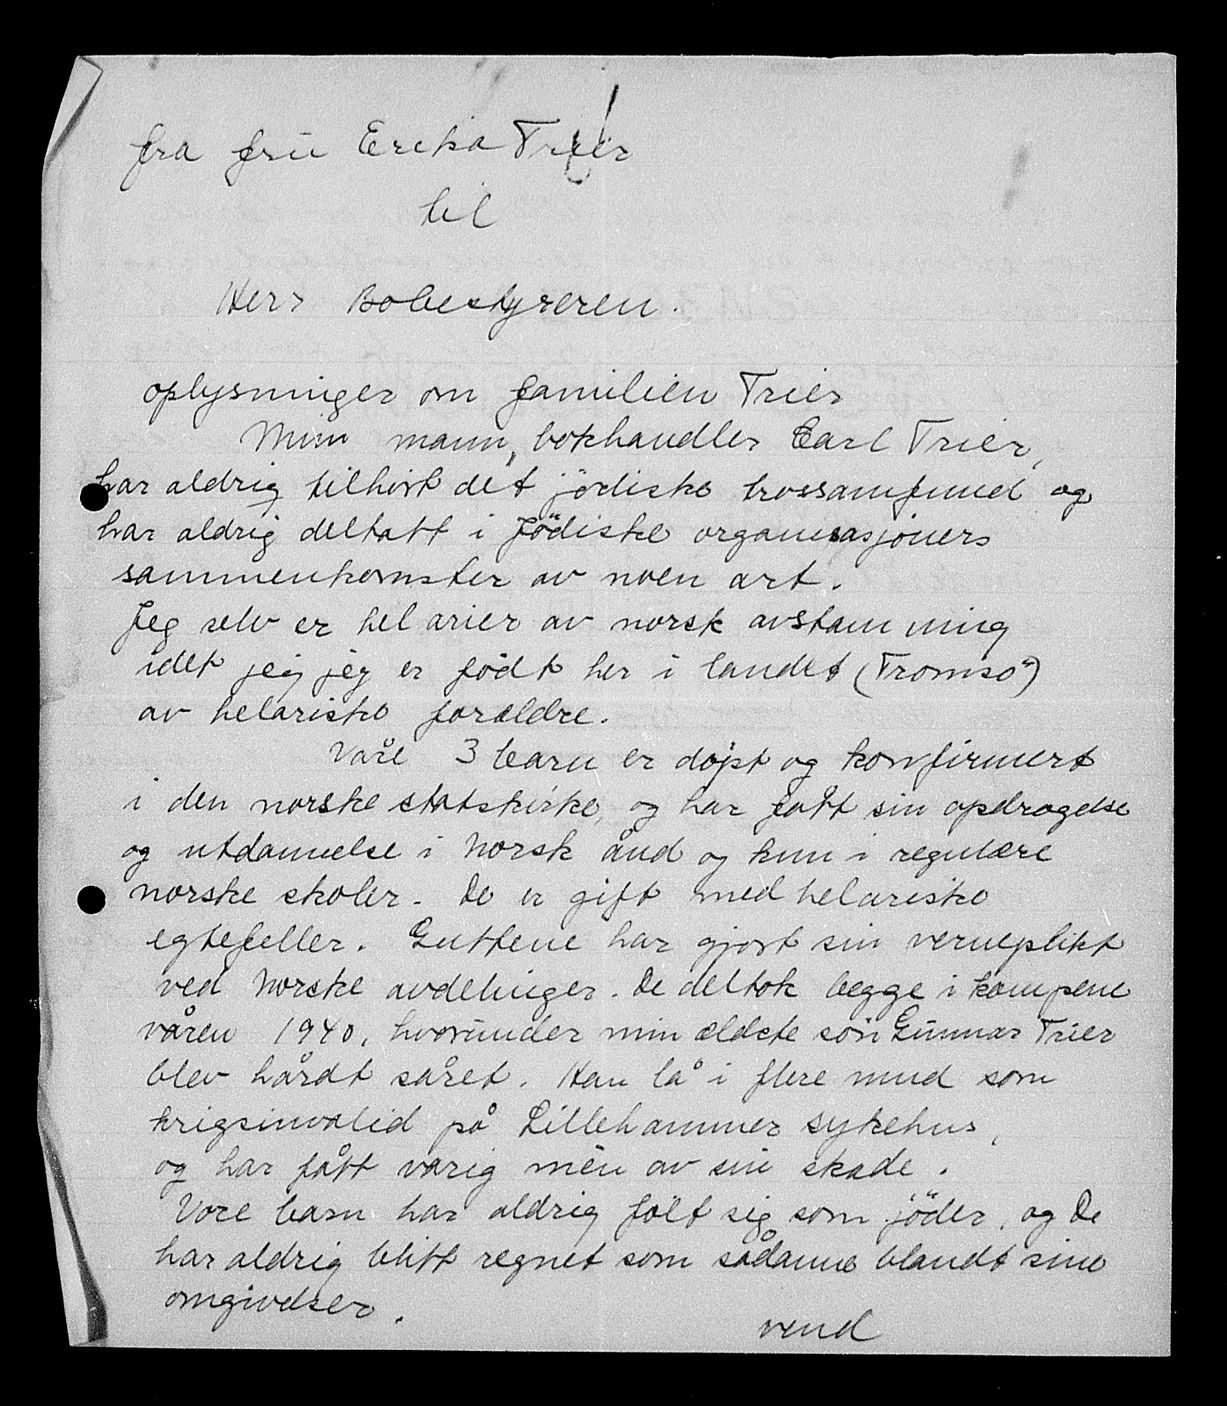 fra frü Erika Trier
til
Herr Bobestyreren
oplysninger om familien Trier
Min mann, bokhandler Carl Trier,
har aldrig tilhört det jødiske trossamfund og
har aldrig deltatt i jödiske organisasjoners
sammenkomster av noen art.
Jeg selv er helarier av norsk avstamming
idet jeg jeg er født her i landet (Tromsö)
av helariske foreldre.
Våre 3 barn er döpt og konfirmert
i den norske statskirke, og har fått sin opdragelse
og utdannelse i norsk ånd og kun i regulære
norske skoler. De er gift med helariske
egtefeller. Guttene har gjort sin verneplikt
ved norske avdelinger. De deltok begge i kampene
våren 1940, hvorunder min ældste sön Gunnar Trier
blev hårdt såret. Han lå i flere mnd som
krigsinvalid på Lillehammer sykehus,
og har fått varig mén av sin skade.
Vore barn har aldrig følt sig som jöder, og De
har aldrig blitt regnet som sådanne blandt sine
omgivelser.
vend